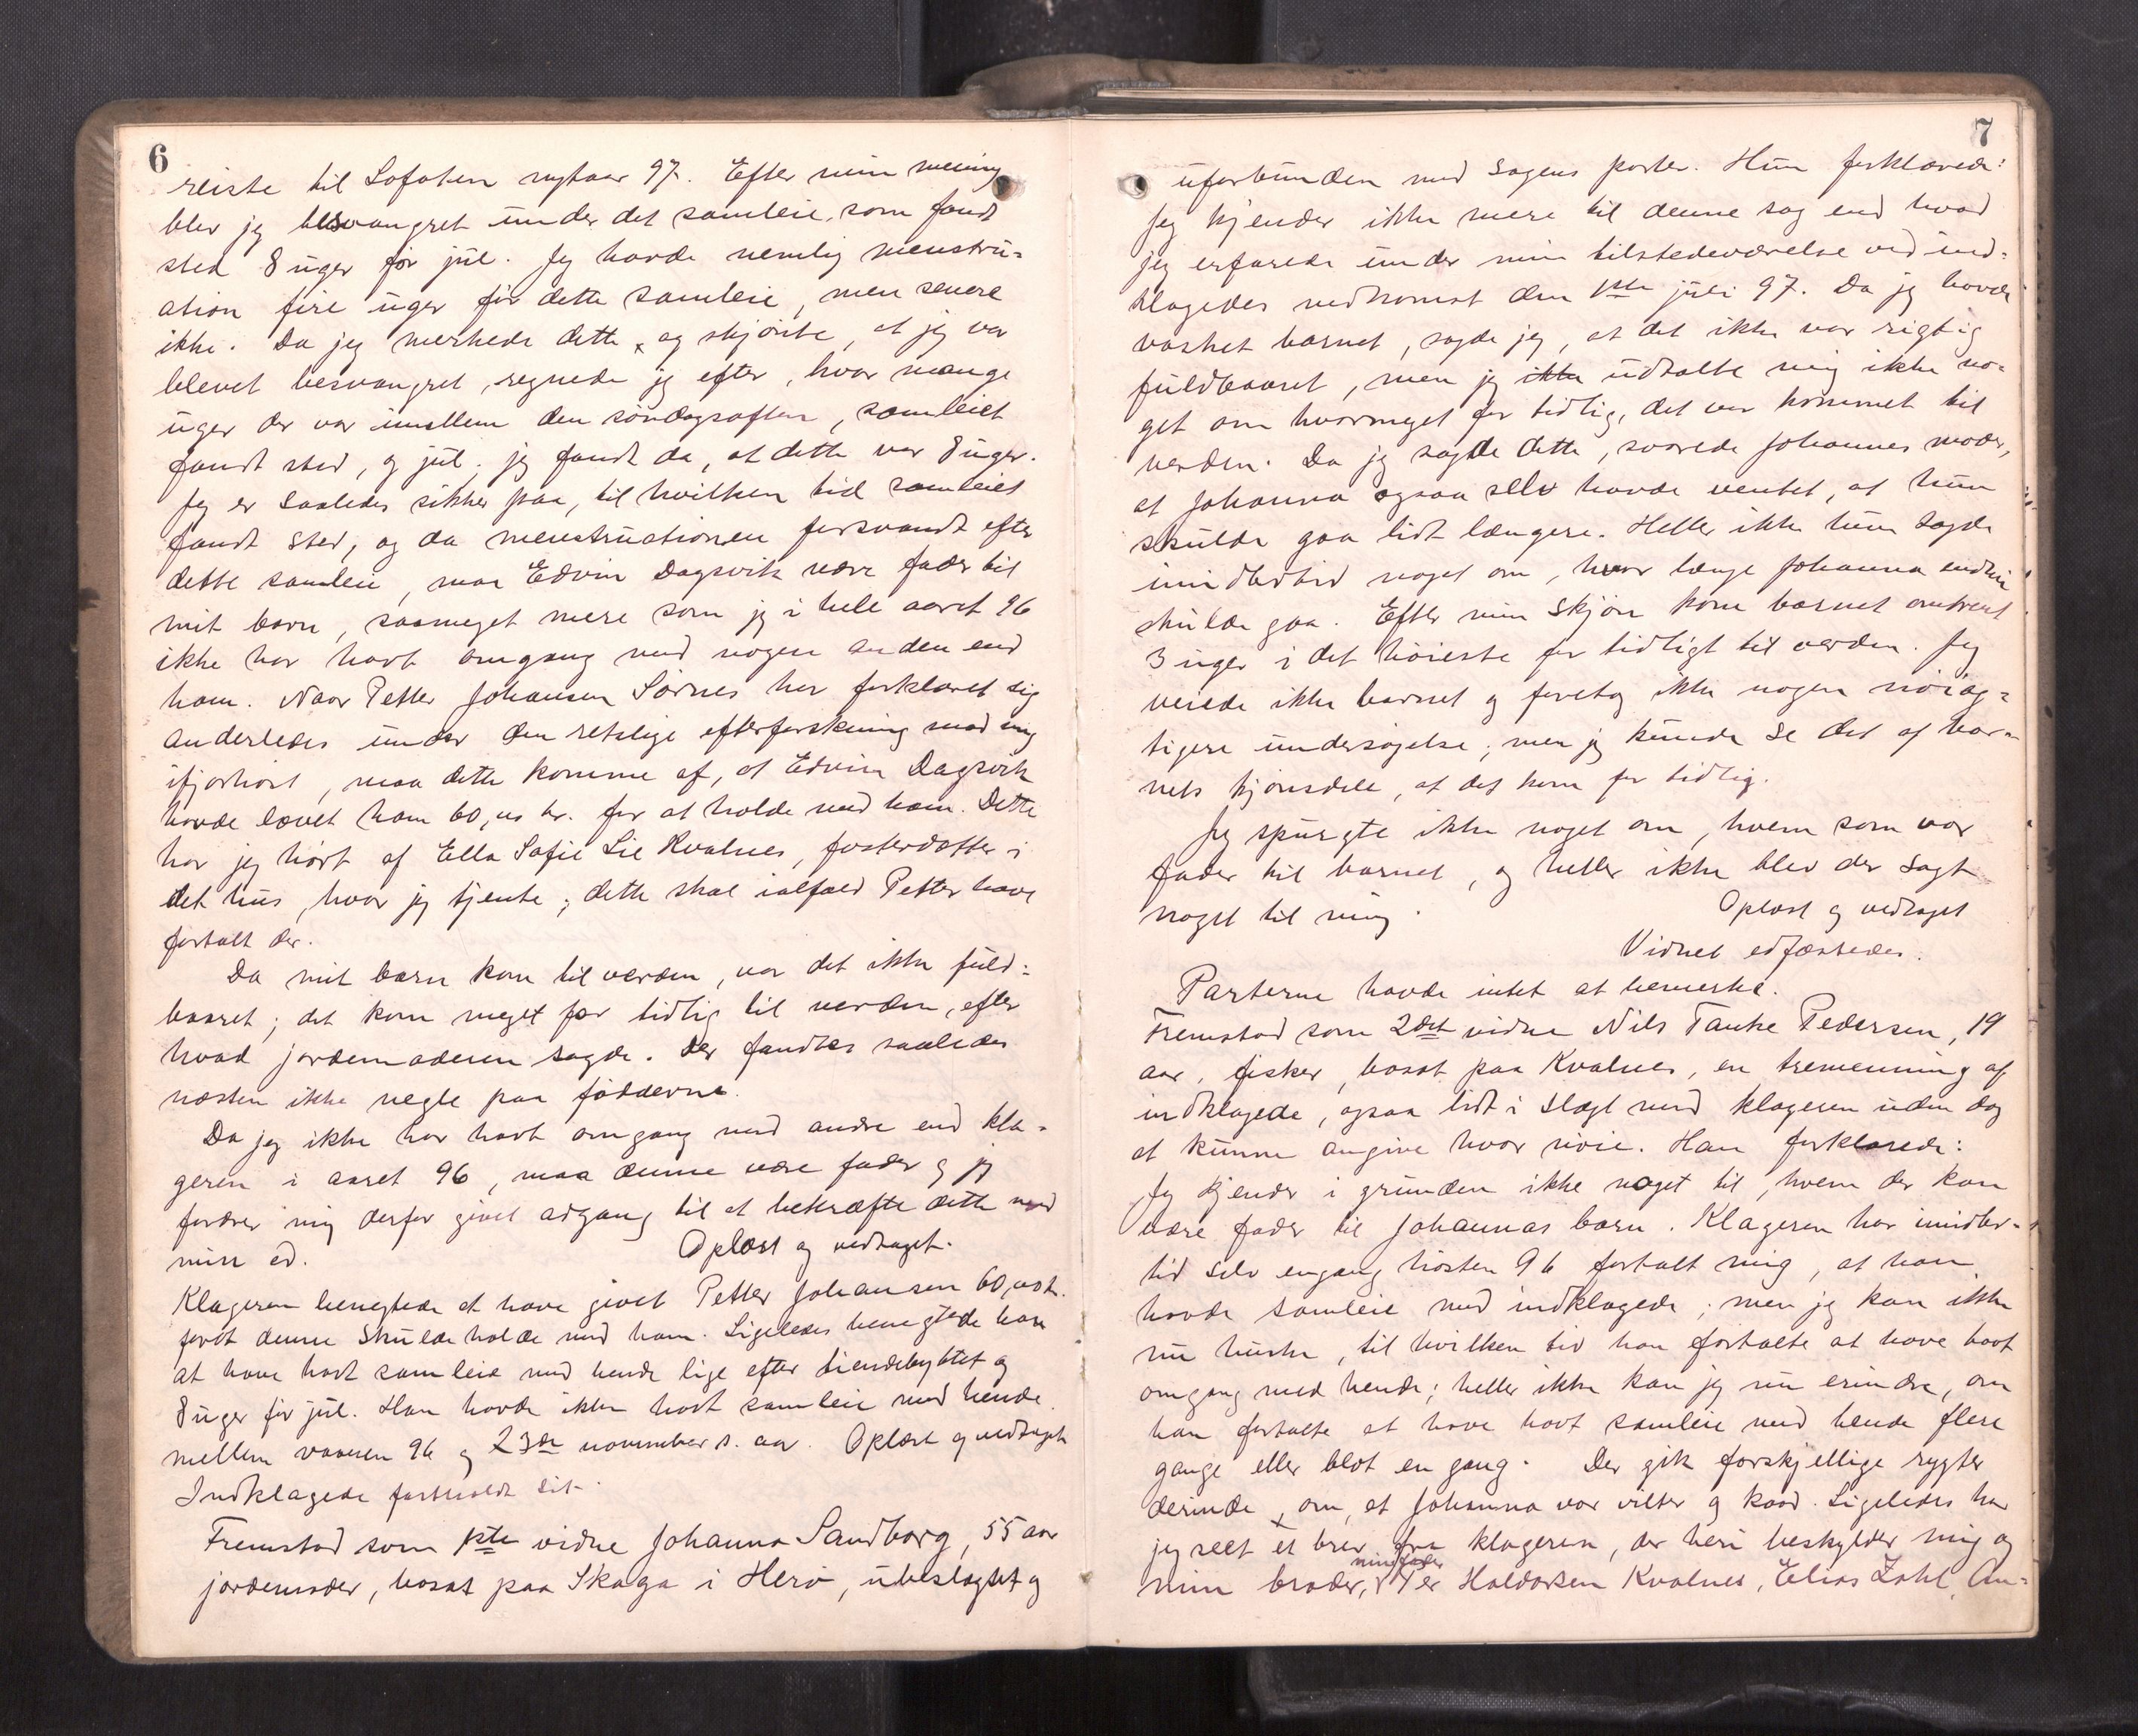 6
reiste til Lofoten nytaar 97. Efter min mening
blev jeg besvangret under det samleie, som fandt
sted 8 uger før jul. Jeg havde nemlig menstru=
ation fire uger før dette samleie, men senere
ikke. Da jeg merkede dette, og skjønte, at jeg var
blevet besvangret, regnede jeg efter, hvor mange
uger der var imellem den søndagsaften, samleiet
fandt sted, og jul. jeg fandt da, at dette var 8 uger.
Jeg er saaledes sikker paa, til hvilken tid samleiet
fandt sted, og da menstruationen forsvandt efter
dette samleie, maa Edvin Dagsvik være fader til
mit barn, saameget mere som jeg i hele aaret 96
ikke har havt omgang med nogen anden end
ham. Naar Petter Johansen Sørnes har forklaret sig
anderledes under den retslige efterforskning mod mig
ifjorhøst, maa dette komme af, at Edvin Dagsvik
havde lovet ham 60,00 kr. for at holde med ham. Dette
har jeg hørt af Ella Sofie Lie Kvalnes, fosterdatter i
det hus, hvor jeg tjente; dette skal ialfald Petter have
fortalt der.
Da mit barn kom til verden, var det ikke fuld=
baaret; det kom meget for tidlig til verden, efter
hvad jordemoderen sagde. Der fandtes saaledes
næsten ikke negle paa fødderne.
Da jeg ikke har havt omgang med andre end kla=
geren i aaret 96, maa denne være fader og jeg
fordrer mig derfor givet adgang til at bekræfte dette med
min ed. Oplæst og vedtaget.
Klageren benegtede at have givet Petter Johansen 60,00 kr.
fordt denne skulde holde med ham. Ligeledes benegtede han
at have havt samleie med hende lige efter tiendebyttet og
8 uger før jul. Han havde ikke havt samleie med hende
mellem vaaren 96 og 23de november s. aar. Oplæst og vedtaget
Indklagede fastholdt sit.
Fremstod som 1ste vidne Johanna Sandborg, 55 aar
jordemoder, bosat paa Skaga i Herø, ubeslægtet og
7
uforbunden med sagens parter. Hun forklarede:
Jeg kjender ikke mere til denne sag end hvad
jeg erfarede under min tilstedeværelse ved ind=
klagedes nedkomst den 1ste juli 97. Da jeg havde
vasket barnet, sagde jeg, at det ikke var rigtig
fuldbaaret, men jeg ikke udtalte mig ikke no=
get om hvormeget for tidlig, det var kommet til
verden. Da jeg sagde dette, svarede Johannes moder,
at Johanna ogsaa selv havde ventet, at hun
skulde gaa lidt længere. Heller ikke hun sagde
imidlertid noget om, hvor længe Johanna endnu
skulde gaa. Efter min skjøn kom barnet omtrent
3 uger i det høieste for tidligt til verden. Jeg
veiede ikke barnet og foretog ikke nogen nøiag=
tigere undersøgelse; men jeg kunde se det af bar=
nets kjønsdele, at det kom for tidlig.
Jeg spurgte ikke noget om, hvem som var
fader til barnet, og heller ikke blev der sagt
noget til mig. Oplæst og vedtaget
Vidnet edfæstedes.
Parterne havde intet at bemerke.
Fremstod som 2det vidne Nils Tanke Pedersen, 19
aar, fisker, bosat paa Kvalnes, en tremenning af
indklagede, ogsaa lidt i slægt med klageren uden dog
at kunne angive hvor nøie. Han forklarede:
Jeg kjender i grunden ikke noget til, hvem der kan
være fader til Johannas barn. Klageren har imidler=
tid selv engang høsten 96 fortalt mig, at han
havde samleie med indklagede; men jeg kan ikke
nu huske, til hvilken tid han fortalte at have havt
omgang med hende; heller ikke kan jeg nu erindre, om
han fortalte at have havt samleie med hende flere
gange eller blot en gang. Der gik forskjellige rygter
derinde, om, at Johanna var vilter og kaad. Ligeledes har
jeg seet et brev fra klageren, der heri beskylder mig og
min broder, min fader Per Haldorsen Kvalnes, Elias Zahl, An=